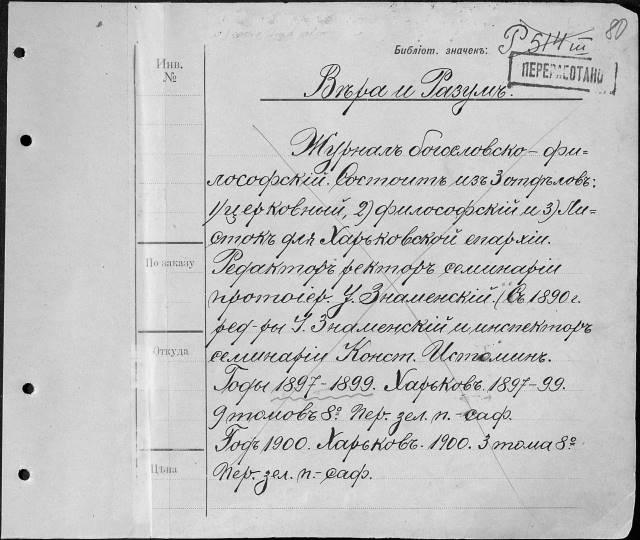 80
Библіот. значекъ: Р 514 III
ПЕРЕРАБОТАНО
Инв.
№
Вѣра и Разумъ.
Журналъ богословско-фи-
лософскій. Состоитъ изъ 3 отдѣловъ:
1) церковный, 2) философскій и 3) Ли-
стокъ для Харьковской епархіи.
По заказу
Редакторъ ректоръ семинаріи
протоіер. І. Знаменскій. (Съ 1890 г.
ред-ры І. Знаменскій и инспекторъ
Откуда
семинаріи Конст. Истоминъ.
Годы 1897-1899. Харьковъ. 1897-99.
9 томовъ 8º. Пер. зел. п.-саф.
Годъ 1900. Харьковъ. 1900. 3 тома 8º
Цѣна
Пер. зел. п.-саф.